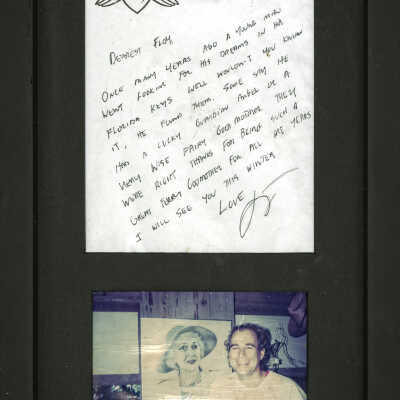 DEAREST FLOY,
ONCE MANY YEARS AGO A YOUNG MAN
WENT LOOKING FOR HIS DREAMS IN THE
FLORIDA KEYS WELL WOULDN'T YOU KNOW
IT, HE FOUND THEM. SOME SAY HE
HAD A LUCKY GUARDIAN ANGEL OR A
VERY WISE FAIRY GODMOTHER THEY
WERE RIGHT THANKS FOR BEING SUCH A
GREAT FAIRY GODMOTHER FOR ALL THE YEARS
I WILL SEE YOU THIS WINTER
LOVE